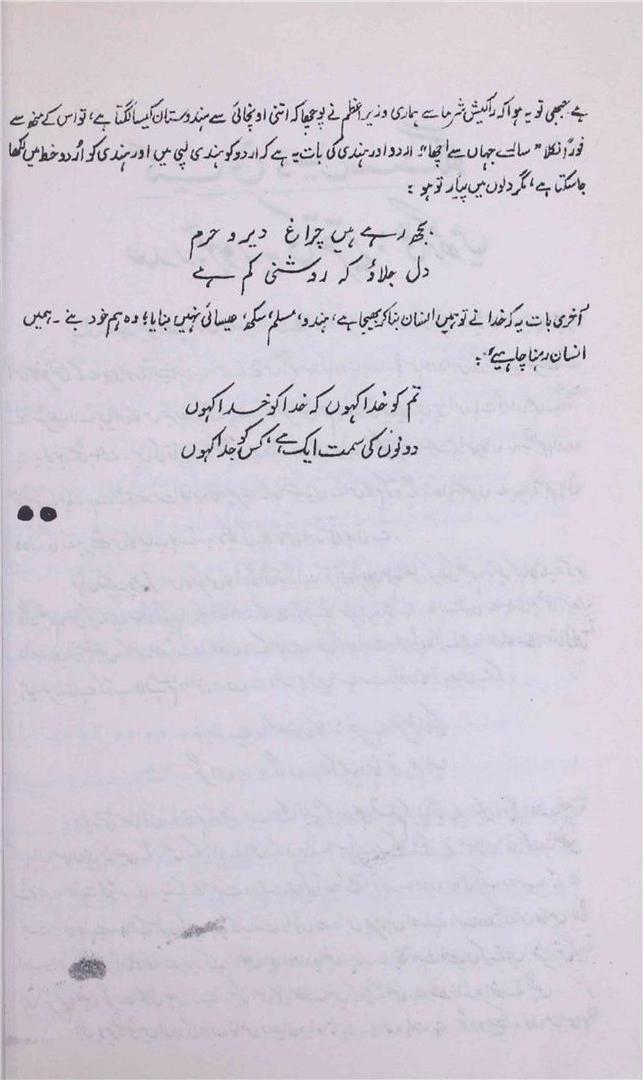 ہے جبھی تو یہ ہوا کہ راکیش شرما سے ہماری وزیر اعظم نے پوچھا کہ اتنی اونچائی سے ہندوستان کیسا لگتا ہے، تو اس کے منھ سے
فوراً نکلا "سارے جہاں سے اچھا"۔ اردو اور ہندی کی بات یہ ہے کہ اردو کو ہندی لپی میں اور ہندی کو اُردو خط میں لکھا
جا سکتا ہے، مگر دلوں میں پیار تو ہو:
بجھ رہے ہیں چراغ دیر و حرم
دل جلاؤ کہ روشنی کم ہے
آخری بات یہ کہ خدا نے تو ہمیں انسان بنا کر بھیجا ہے، ہندو، مسلم، سکھ، عیسائی نہیں بنایا؛ وہ ہم خود بنے۔ ہمیں
انسان رہنا چاہیے:
تم کو خدا کہوں کہ خدا کو خدا کہوں
دونوں کی سمت ایک ہے، کس کو جدا کہوں